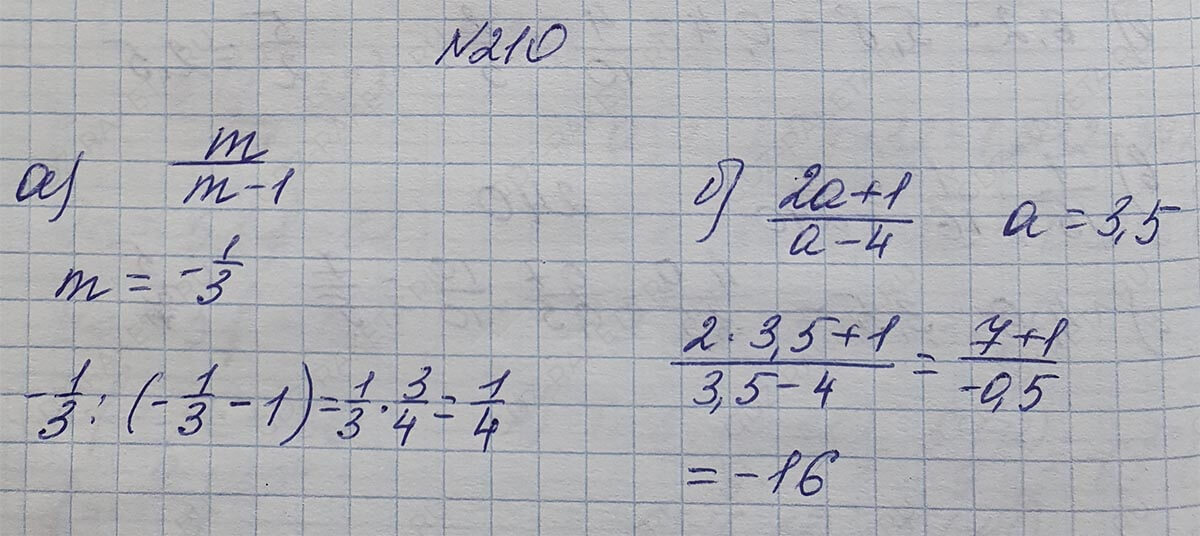 №210
а) m/(m-1)
m = -1/3
-1/3 : (-1/3 - 1) = 1/3 · 3/4 = 1/4
б) (2a+1)/(a-4) a = 3,5
(2 · 3,5+1)/(3,5-4) = (7+1)/(-0,5)
= -16